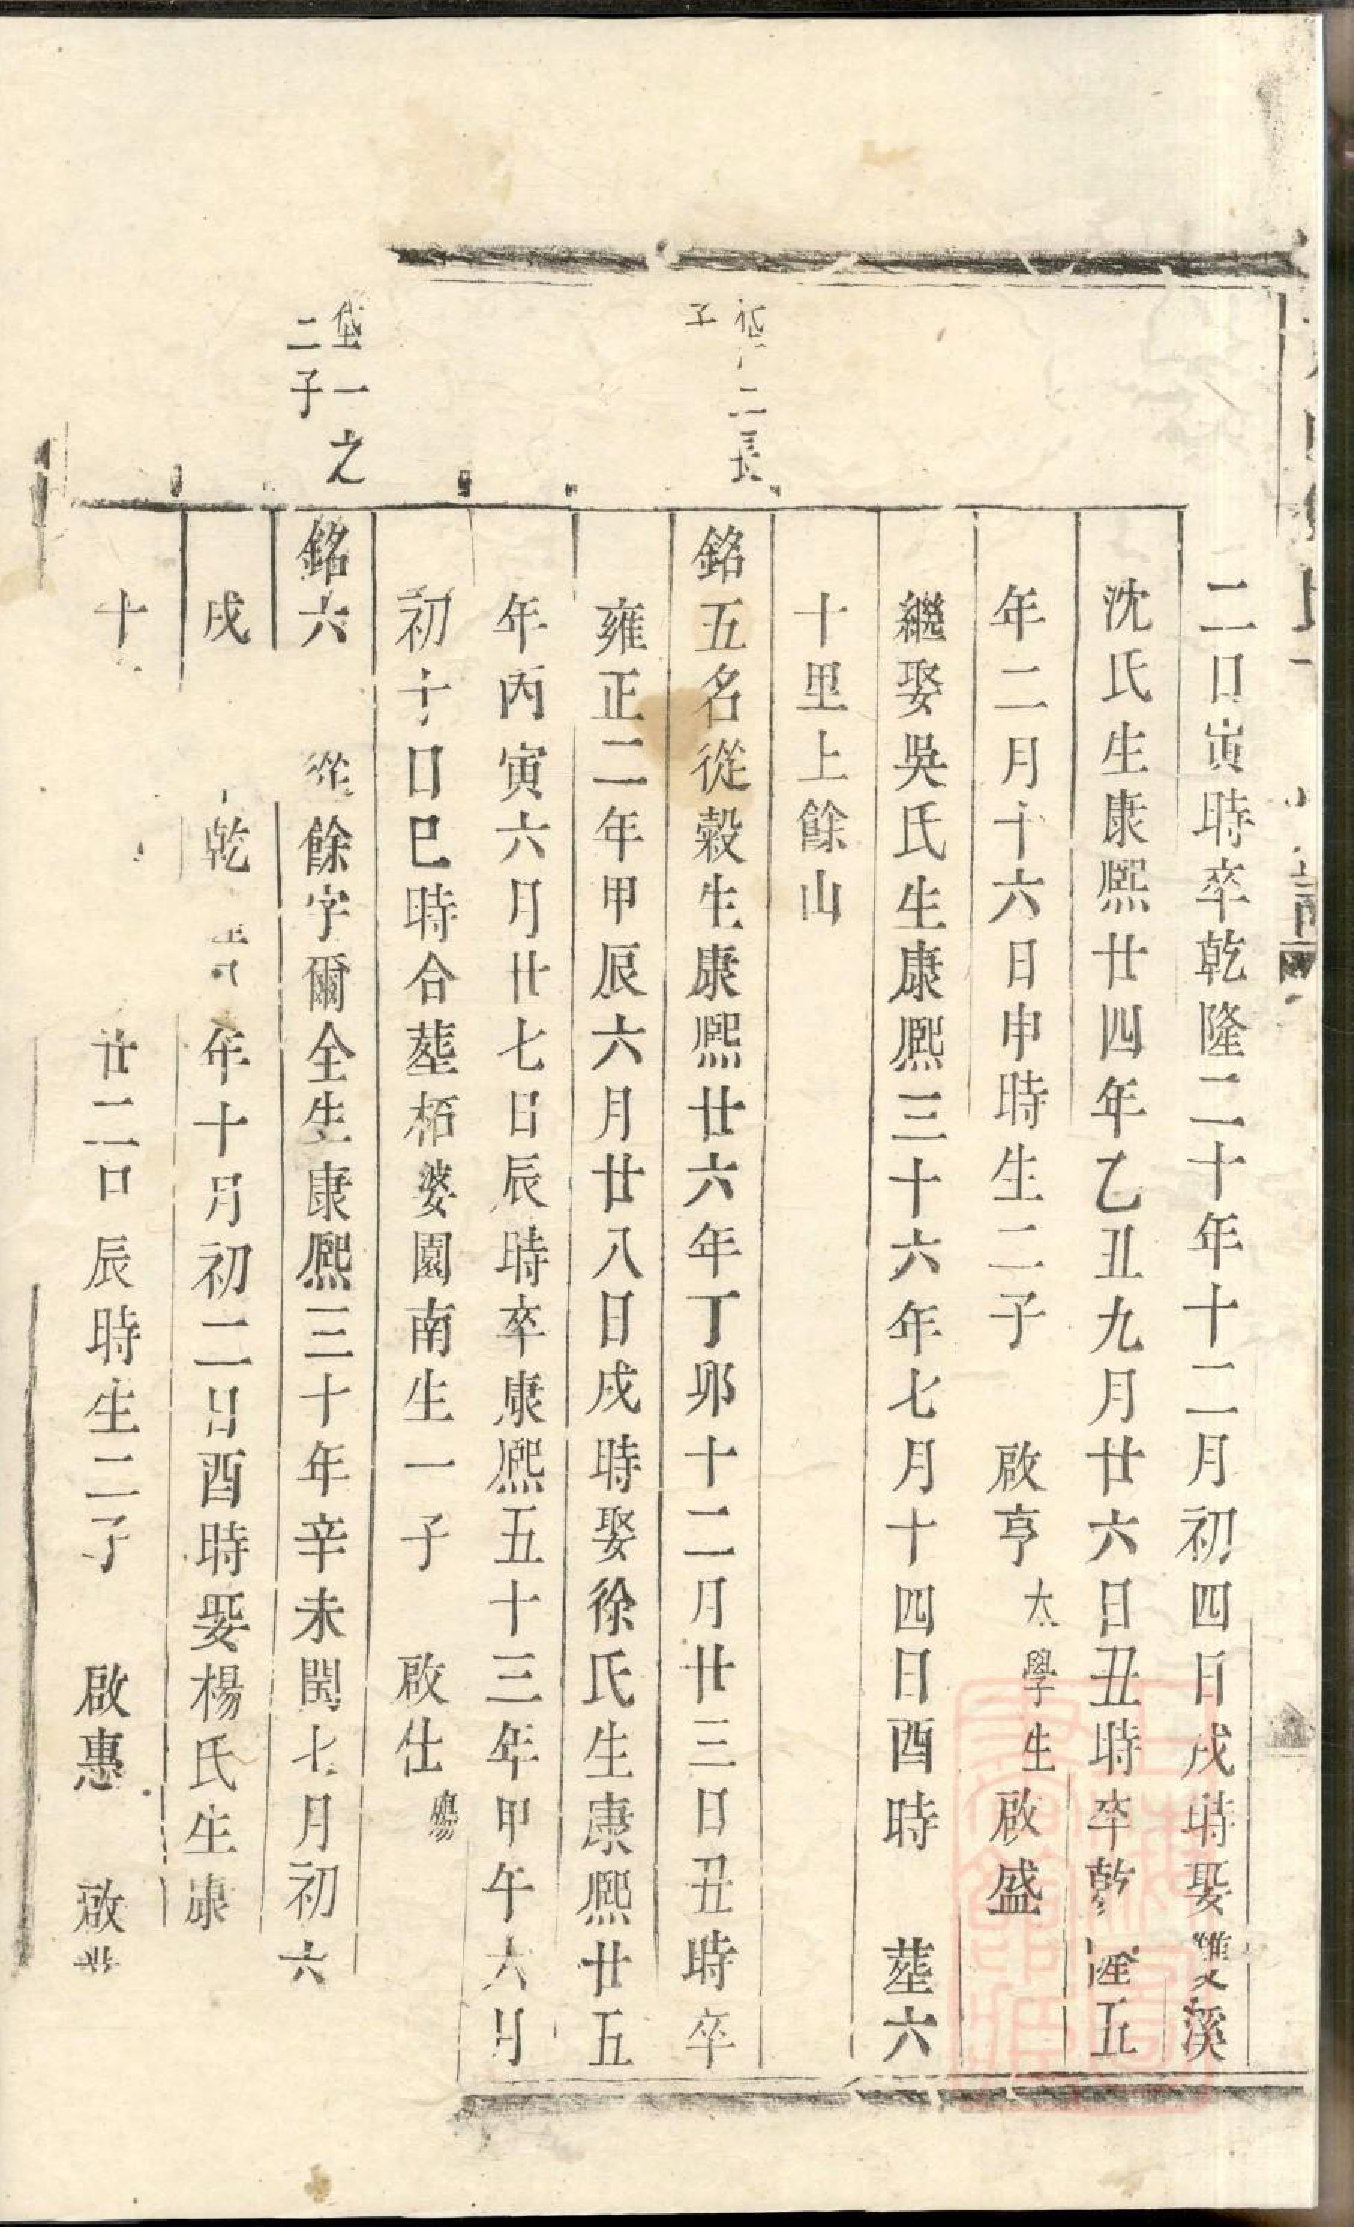 二日寅時卒乾隆二十年十二月初四日戌時娶雙溪
沈氏生康熙廿四年乙丑九月廿六日丑時卒乾隆五
年二月十六日申時生二子　啟亨　太學生　啟盛
繼娶吳氏生康熙三十六年七月十四日酉時　葬六
十里上餘山
二長
子
銘五名從穀生康熙廿六年丁卯十二月廿三日丑時卒
雍正二年甲辰六月廿八日戌時娶徐氏生康熙廿五
年丙寅六月廿七日辰時卒康熙五十三年甲午六月
初十日巳時合葬栢婆園南生一子　啟仕　殤
一之
二子
銘六　從餘字爾全生康熙三十年辛未閏七月初六
戌　乾　年十月初二日酉時娶楊氏生康
十　廿二日辰時生二子　啟惠　啟